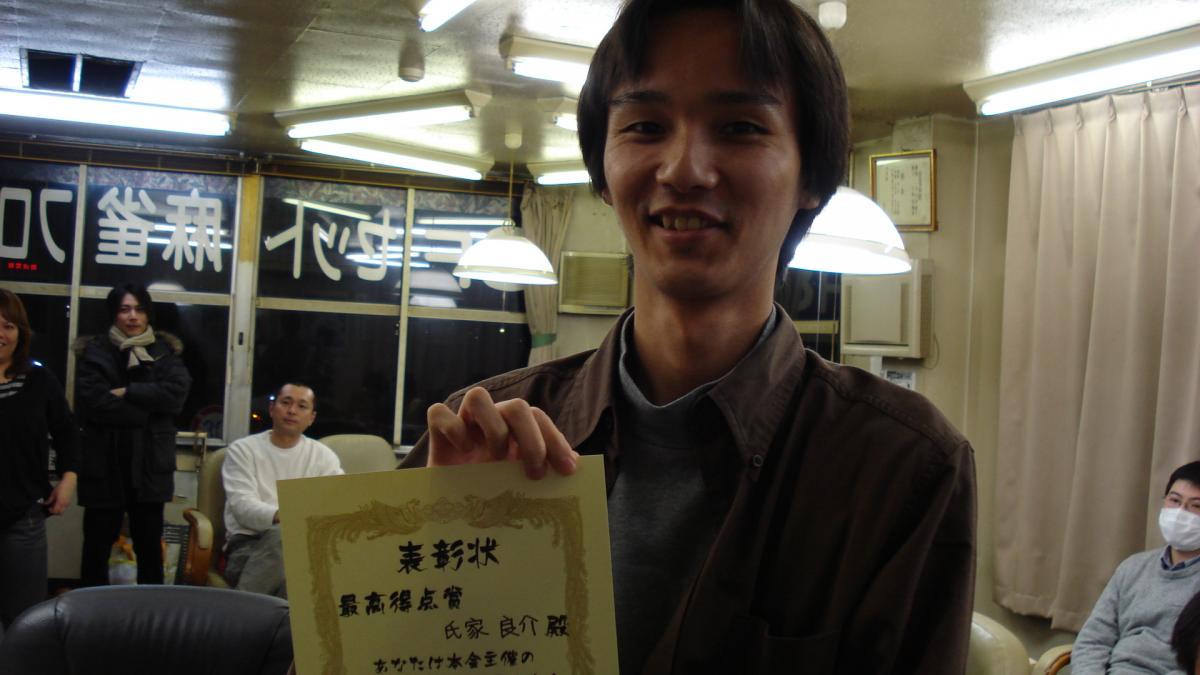 プロ
麻雀
セット
表彰状
最高得点賞
氏家 良介 殿
あなたは本会主催の